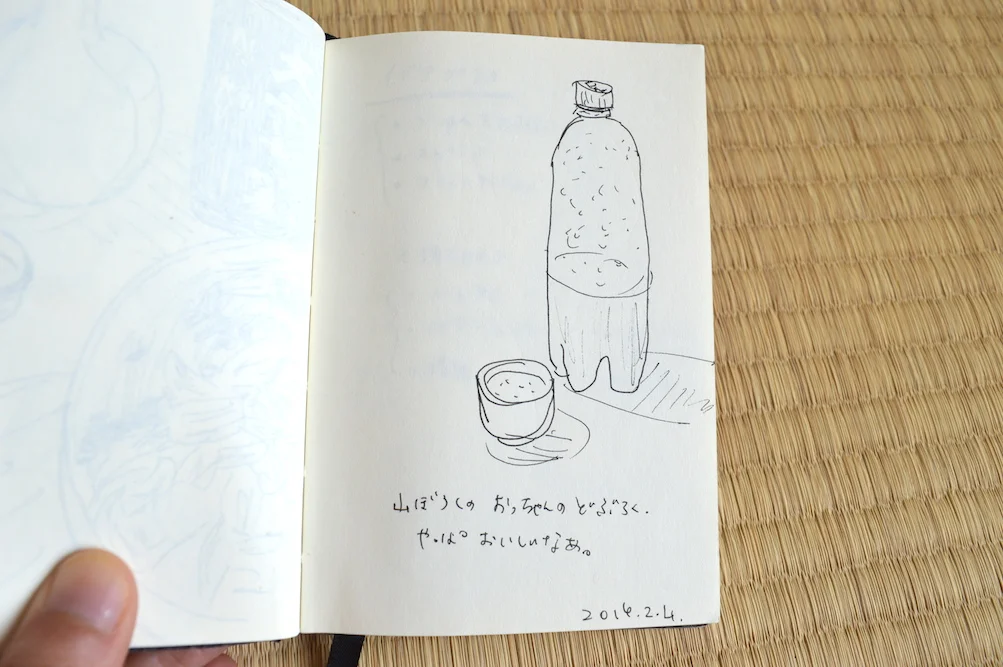 山ぼうしの おっちゃんの どぶろく.
やっぱ おいしいなあ。
2014.2.4.